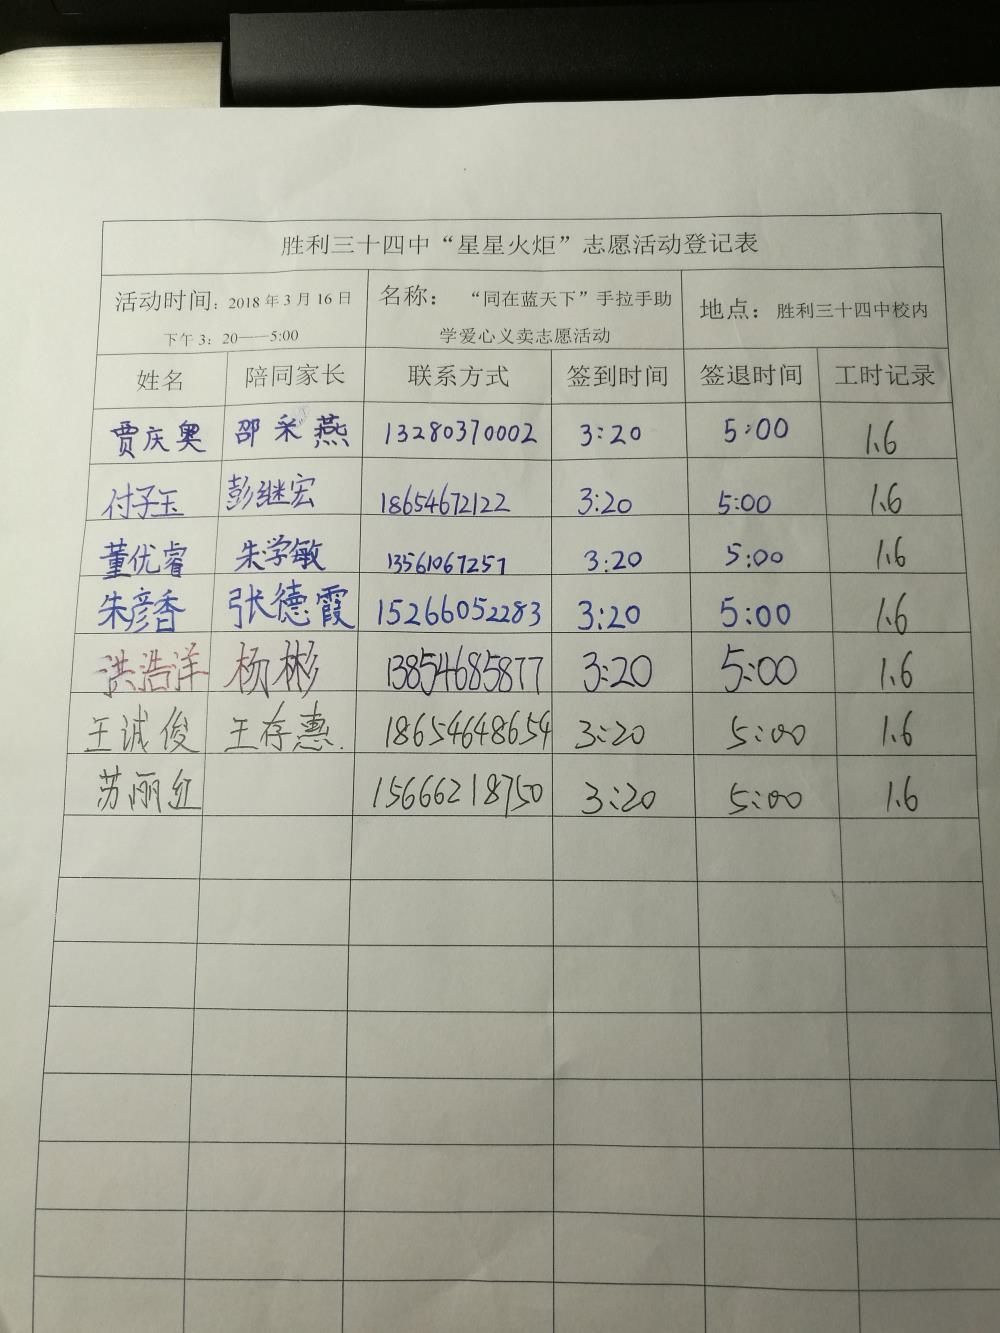 胜利三十四中“星星火炬”志愿活动登记表
活动时间：2018年3月16日 名称： “同在蓝天下”手拉手助 地点：胜利三十四中校内
下午3：20——5:00 学爱心义卖志愿活动
姓名 陪同家长 联系方式 签到时间 签退时间 工时记录
贾庆奥 邵采燕 13280370002 3:20 5:00 1.6
付子玉 彭继宏 18654672122 3:20 5:00 1.6
董优睿 朱学敏 13561067257 3:20 5:00 1.6
朱彦香 张德霞 15266052283 3:20 5:00 1.6
洪浩洋 杨彬 13854685877 3:20 5:00 1.6
王诚俊 王存惠. 18654648654 3:20 5:00 1.6
苏丽红 15666218750 3:20 5:00 1.6